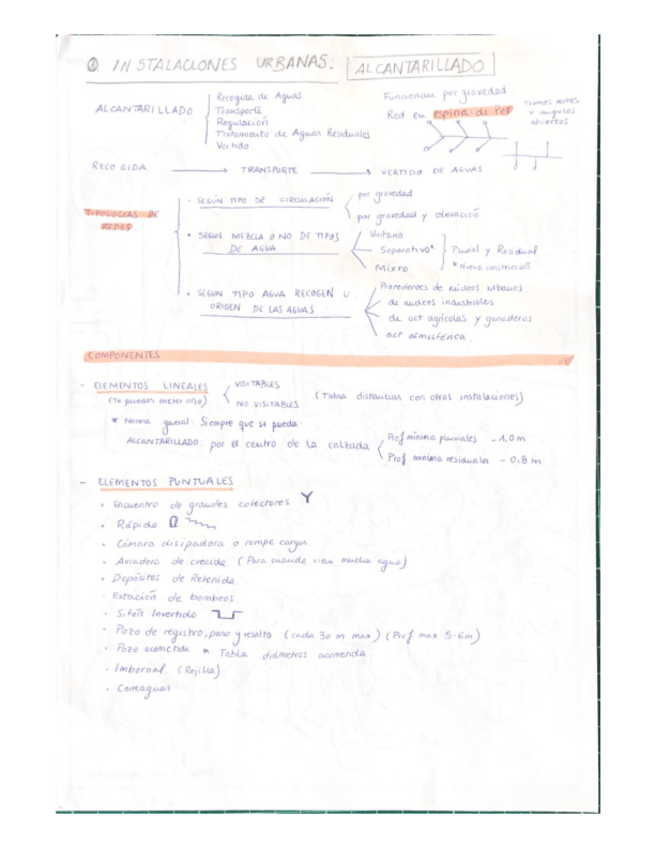 INSTALACIONES URBANAS. ALCANTARILLADO
ALCANTARILLADO
Recogida de Aguas
Transporte
Regulación
Tratamiento de Aguas Residuales
Vertido
Funcionan por gravedad
Red en espina de Pez
Tramos rectos
y angulos
abiertos
RECOGIDA → TRANSPORTE → VERTIDO DE AGUAS
TIPOLOGIAS DE
REDES
· SEGÚN TIPO DE CIRCULACIÓN
por gravedad
por gravedad y elevación
· SEGUN MEZCLA O NO DE TIPOS
DE AGUA
Unitario
Separativo*
Mixto
Pluvial y Residual
* Nueva construcción
· SEGUN TIPO AGUA RECOGEN U
ORIGEN DE LAS AGUAS
Procedentes de núcleos urbanos
de nucleos industriales
de act agrícolas y ganaderas
act atmosférica.
COMPONENTES
- ELEMENTOS LINEALES
(Te puedes meter o no)
VISITABLES
NO VISITABLES
(Tabla distancias con otras instalaciones)
* Norma general: Siempre que se pueda
ALCANTARILLADO: por el centro de la calzada
Prof mínima pluviales - 1,0 m
Prof mínima residuales - 0,8 m.
- ELEMENTOS PUNTUALES
· Encuentro de grandes colectores
· Rápido
· Cámara disipadora o rompe cargas
· Aliviadero de crecida (Para cuando viene mucha agua)
· Depósitos de Retenida
· Estación de bombeos
· Sifón Invertido
· Pozo de registro, paso y resalto (cada 30 m max) (Prof max 5-6m)
· Pozo acometida * Tabla diámetros acometida.
· Imbornal (Rejilla)